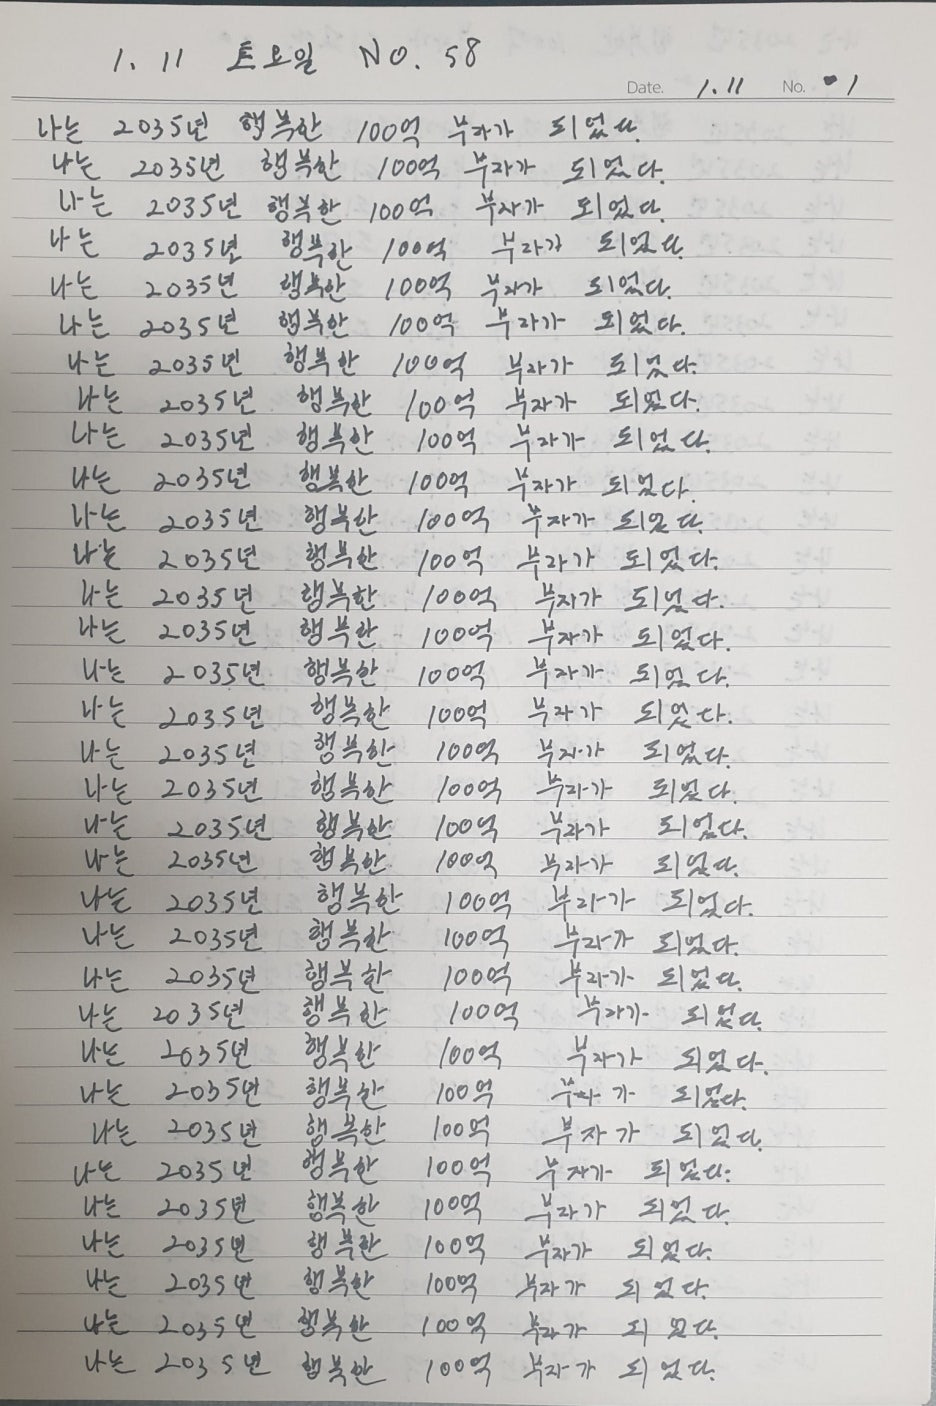 1. 11 토요일 NO. 58
Date. 1. 11 No. 1
나는 2035년 행복한 100억 부자가 되었다.
나는 2035년 행복한 100억 부자가 되었다.
나는 2035년 행복한 100억 부자가 되었다.
나는 2035년 행복한 100억 부자가 되었다.
나는 2035년 행복한 100억 부자가 되었다.
나는 2035년 행복한 100억 부자가 되었다.
나는 2035년 행복한 100억 부자가 되었다.
나는 2035년 행복한 100억 부자가 되었다.
나는 2035년 행복한 100억 부자가 되었다.
나는 2035년 행복한 100억 부자가 되었다.
나는 2035년 행복한 100억 부자가 되었다.
나는 2035년 행복한 100억 부자가 되었다.
나는 2035년 행복한 100억 부자가 되었다.
나는 2035년 행복한 100억 부자가 되었다.
나는 2035년 행복한 100억 부자가 되었다.
나는 2035년 행복한 100억 부자가 되었다.
나는 2035년 행복한 100억 부자가 되었다.
나는 2035년 행복한 100억 부자가 되었다.
나는 2035년 행복한 100억 부자가 되었다.
나는 2035년 행복한 100억 부자가 되었다.
나는 2035년 행복한 100억 부자가 되었다.
나는 2035년 행복한 100억 부자가 되었다.
나는 2035년 행복한 100억 부자가 되었다.
나는 2035년 행복한 100억 부자가 되었다.
나는 2035년 행복한 100억 부자가 되었다.
나는 2035년 행복한 100억 부자가 되었다.
나는 2035년 행복한 100억 부자가 되었다.
나는 2035년 행복한 100억 부자가 되었다.
나는 2035년 행복한 100억 부자가 되었다.
나는 2035년 행복한 100억 부자가 되었다.
나는 2035년 행복한 100억 부자가 되었다.
나는 2035년 행복한 100억 부자가 되었다.
나는 2035년 행복한 100억 부자가 되었다.